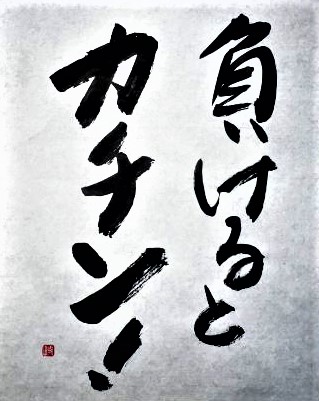 負けると
カチン!